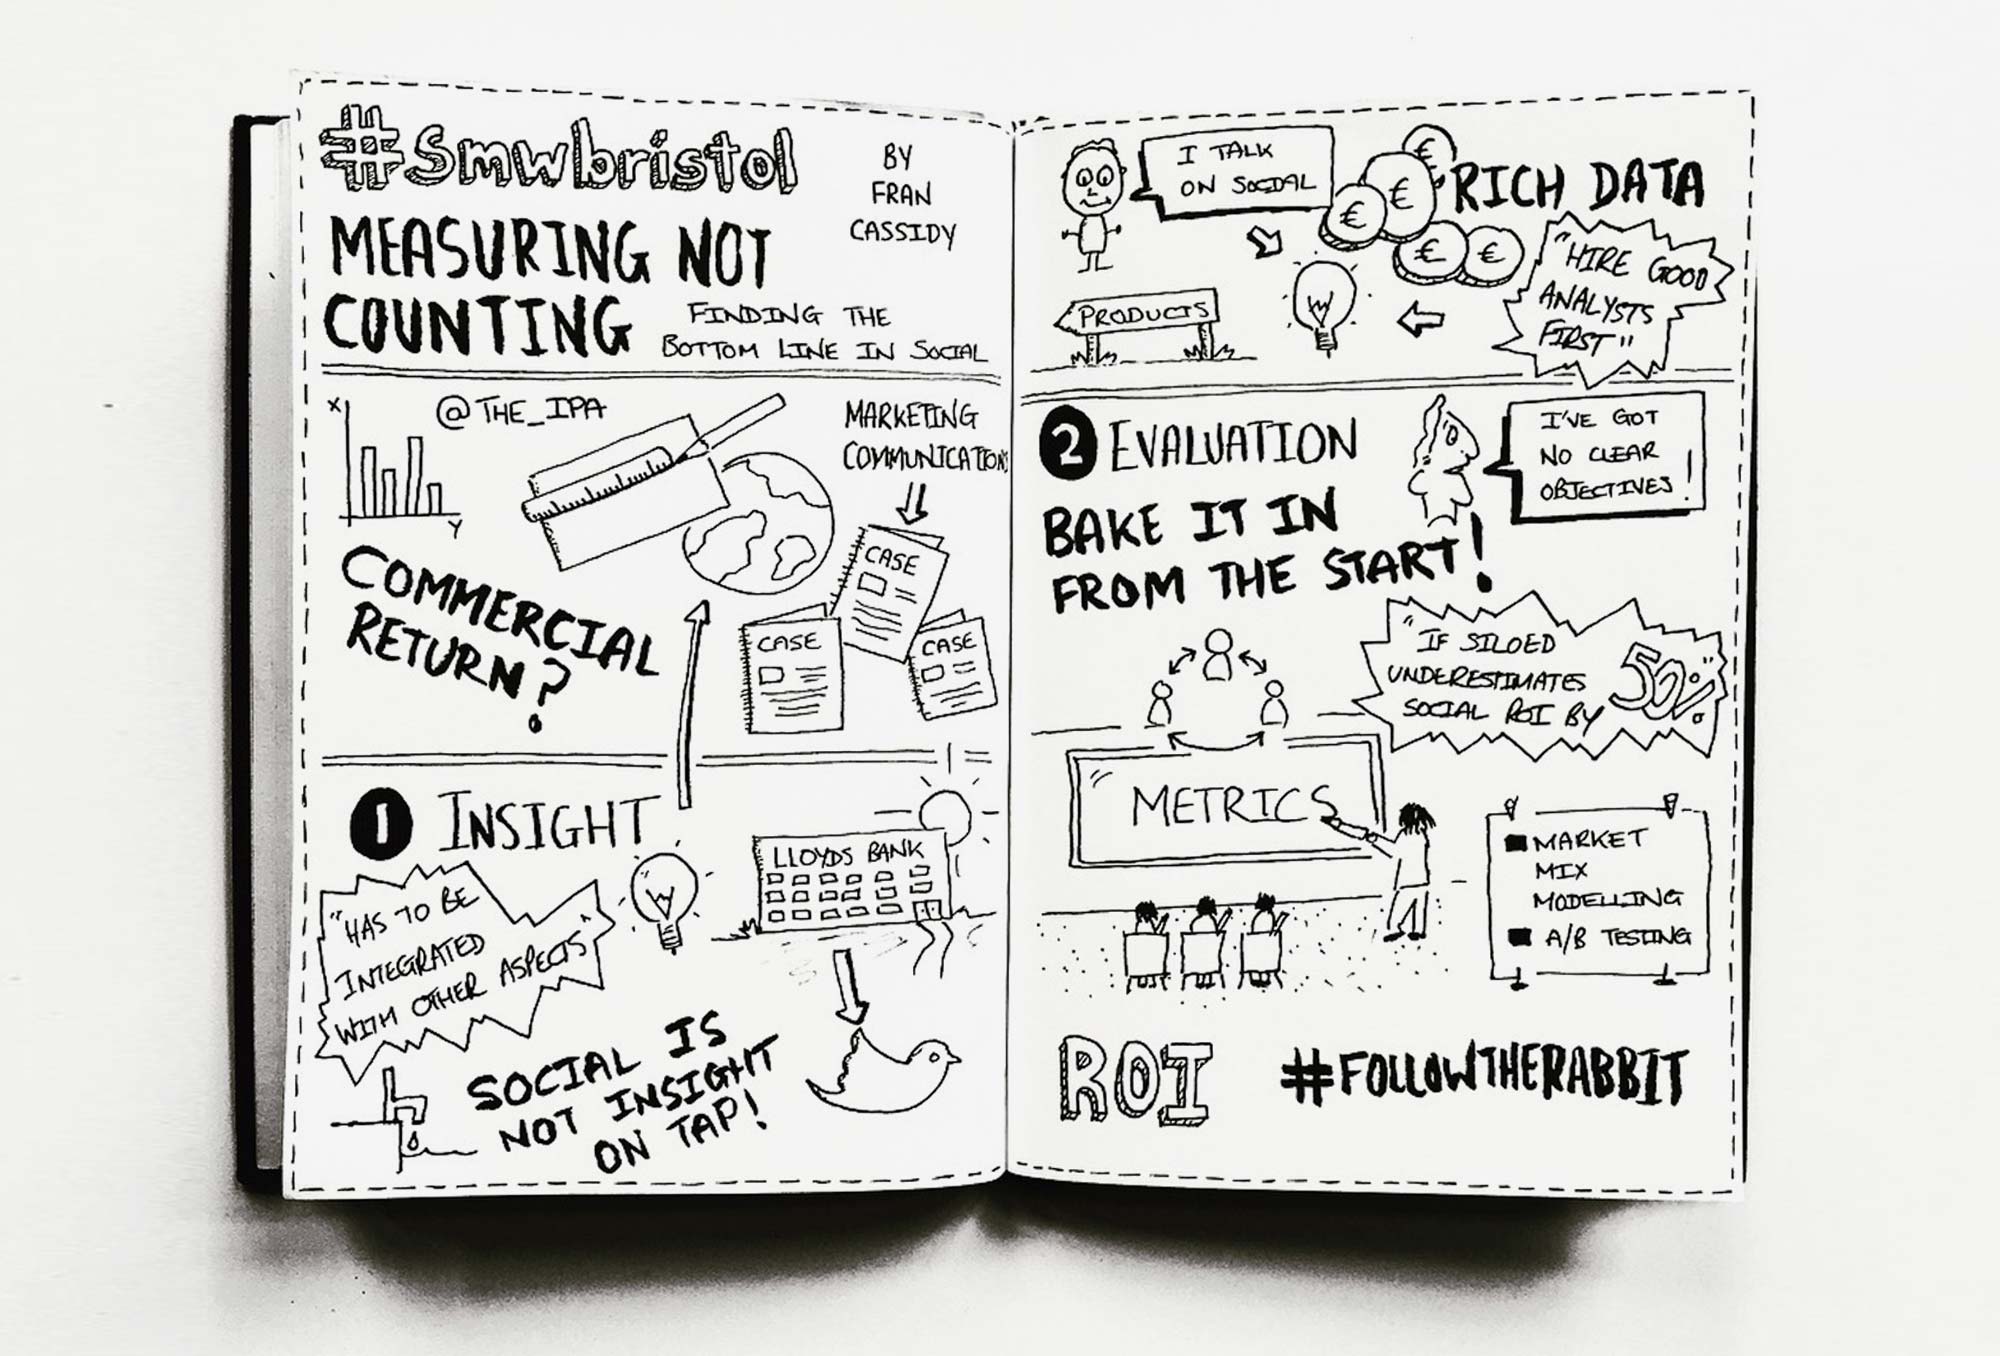 #Smwbristol
BY
FRAN
CASSIDY
MEASURING NOT
COUNTING
FINDING THE
BOTTOM LINE IN SOCIAL
X
@THE_IPA
Y
MARKETING
COMMUNICATIONS
CASE
CASE
CASE
COMMERCIAL
RETURN?
1 INSIGHT
"HAS TO BE
INTEGRATED
WITH OTHER ASPECTS"
LLOYDS BANK
SOCIAL IS
NOT INSIGHT
ON TAP!
I TALK
ON SOCIAL
€
€
€
€
€
RICH DATA
"HIRE GOOD
ANALYSTS
FIRST"
PRODUCTS
2 EVALUATION
I'VE GOT
NO CLEAR
OBJECTIVES!
BAKE IT IN
FROM THE START!
"IF SILOED
UNDERESTIMATES
SOCIAL ROI BY 50%"
METRICS
MARKET
MIX
MODELLING
A/B TESTING
ROI
#FOLLOWTHERABBIT